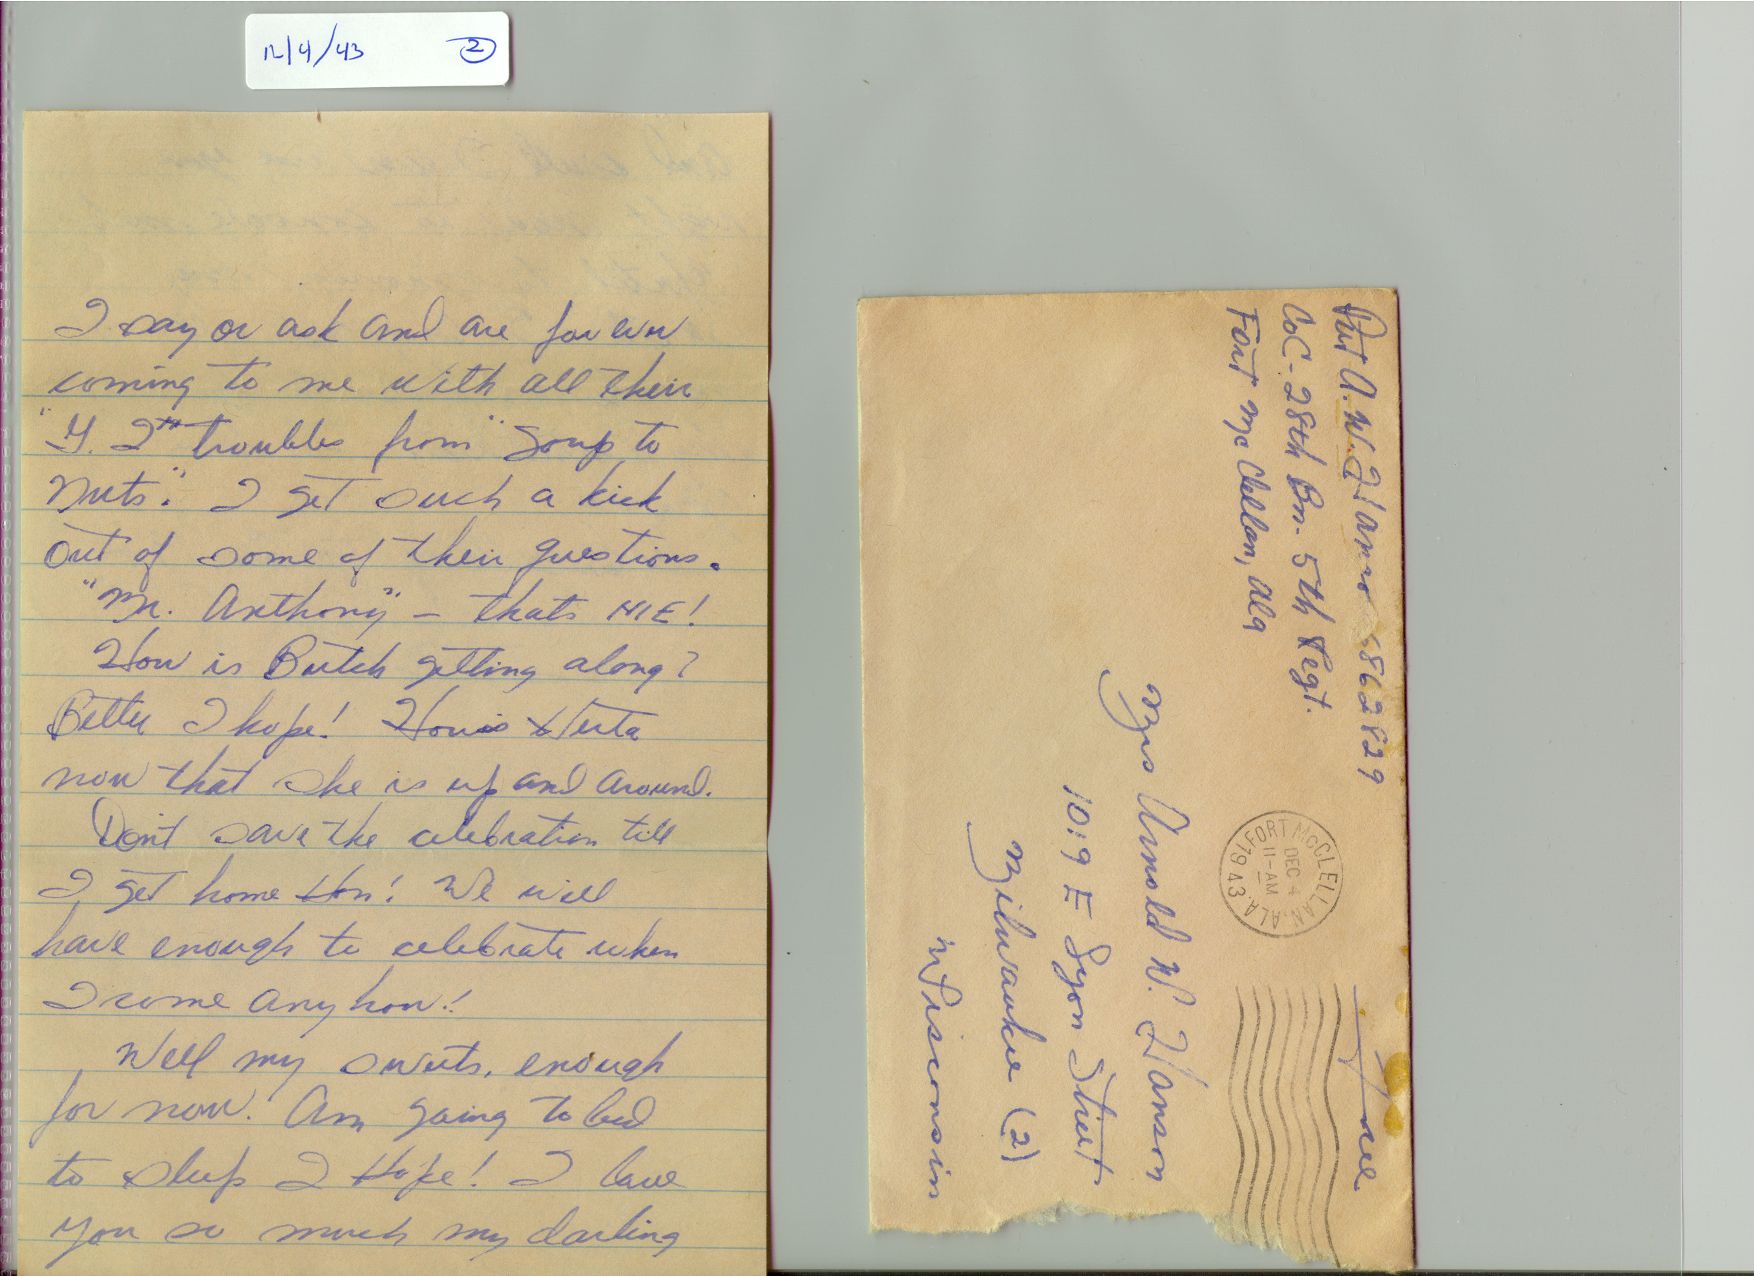 12/4/43 2
I say or ask and are forever
coming to me with all their
"G.I" troubles from "Soup to
Nuts". I get such a kick
out of some of their questions.
"Mr. Anthony" - thats ME!
How is Butch getting along?
Better I hope! How is Herta
now that she is up and around.
Don't save the celebration till
I get home Hon! We will
have enough to celebrate when
I come anyhow!
Well my sweets, enough
for now. Am going to bed
to sleep I Hope! I love
you so much my darling
Pvt A.W. Hanson 6862829
Co C - 28th Bn. 5th Regt.
Fort Mc Clellan, Ala
Free
FORT MCCLELLAN, ALA.
DEC 4
11-AM
1943
Mrs Arnold W. Hanson
1019 E Lyon Street
Milwaukee (2)
Wisconsin